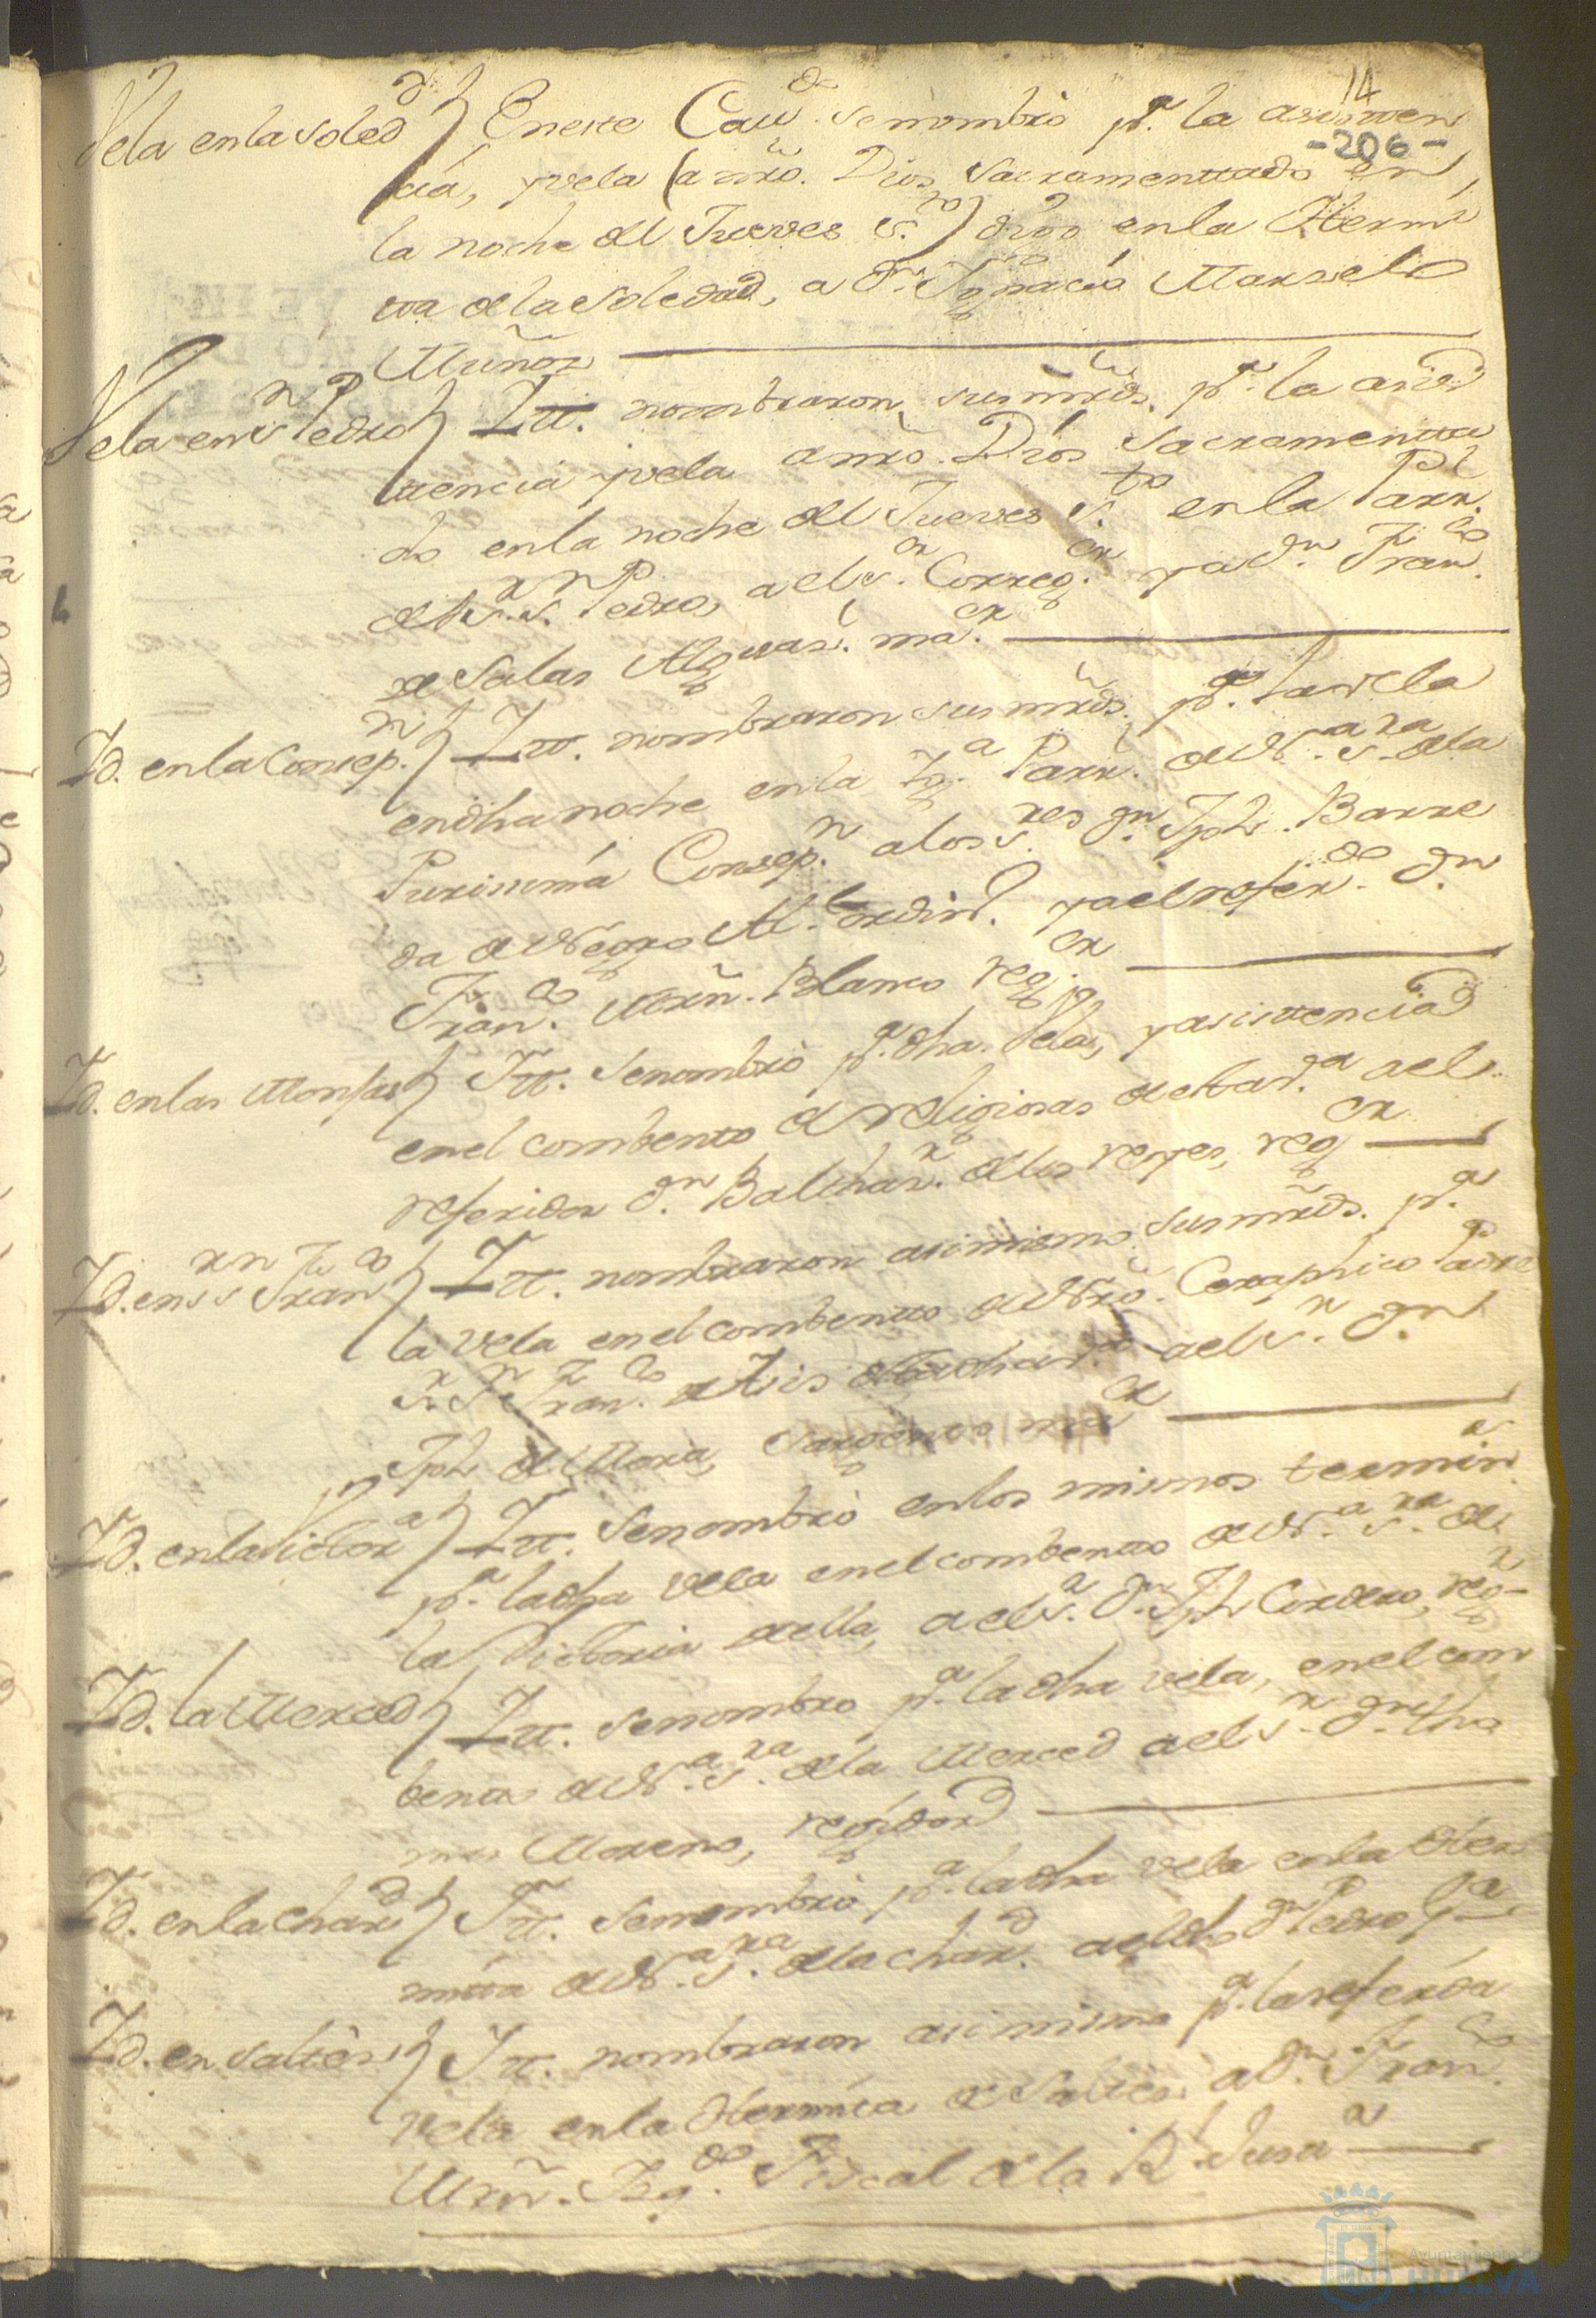 14
-206-
Vela en la Soled.d } En este Cav.do se nombró p.a la asisten
cia, y vela (a nrô. Dios Sacramenttado en
la noche del Jueves S.to) dho en la Hermi
tta de la Soledad, a d.n Ygnacio Marzelo
Muñoz
Vela en S.n Pedro } Itt. nombraron sus mrds. p.a la asis
ttencia y vela a nrô. Dios Sacramentta
do en la noche del Jueves S.to en la Parr.l
del S.r S.n Pedro, a el S.r Correg.or y a d.n Fran.co
de Salas Alguasi.l ma.or
Id. en la Consep.n } Itt. nombraron sus mrds. p.a la vela
en dha noche en la Yg.a Parr. de N.a S.ra de la
Purissima Consep.n a los S.res d.n Jph. Barre
da de Negro Al.e ordin.o y a el refer.do d.n
Fran.co Mrñ. Blanco reg.or
Id. en las Monjas } Itt. se nombró p.a dha. Vela, y asisttencia
en el combento de religiosas de esta v.a a el
referido d.n Balthas.r de los reyes, reg.or
Id. en S.r S.n Fran.co } Itt. nombraron asimismo sus mrds. p.a
la vela en el combentto de Nrô. Ceraphico Padre
S.r S.n Fran.co de Asis de esta dha v.a a el S.r d.n
Jph de Mora, Sargento ma.or
Id. en la Victor.a } Itt. se nombró en los mismos termin.s
p.a la dha vela en el combentto de N.a S.ra de
la Victoria de ella, a el S.r d.n Jph Cordero, reg.r
Id. la Merced } Itt. se nombró p.a la dha vela, en el com
bentto de N.a S.ra de la Merced a el S.r d.n Tho
mas Moreno, regidor
Id. en la Charid.d } Itt. se nombró p.a la dha vela en la Her
mitta de N.a S.ra de la Charid. a el dho d.n Pedro
Id. en Saltès } Itt. nombraron asimismo p.a la referida
vela en la Hermita de Saltes a d.n Fran.co
Mrñ. Izq.do Fiscal de la R.l Justt.a
Ayuntamiento de
HUELVA